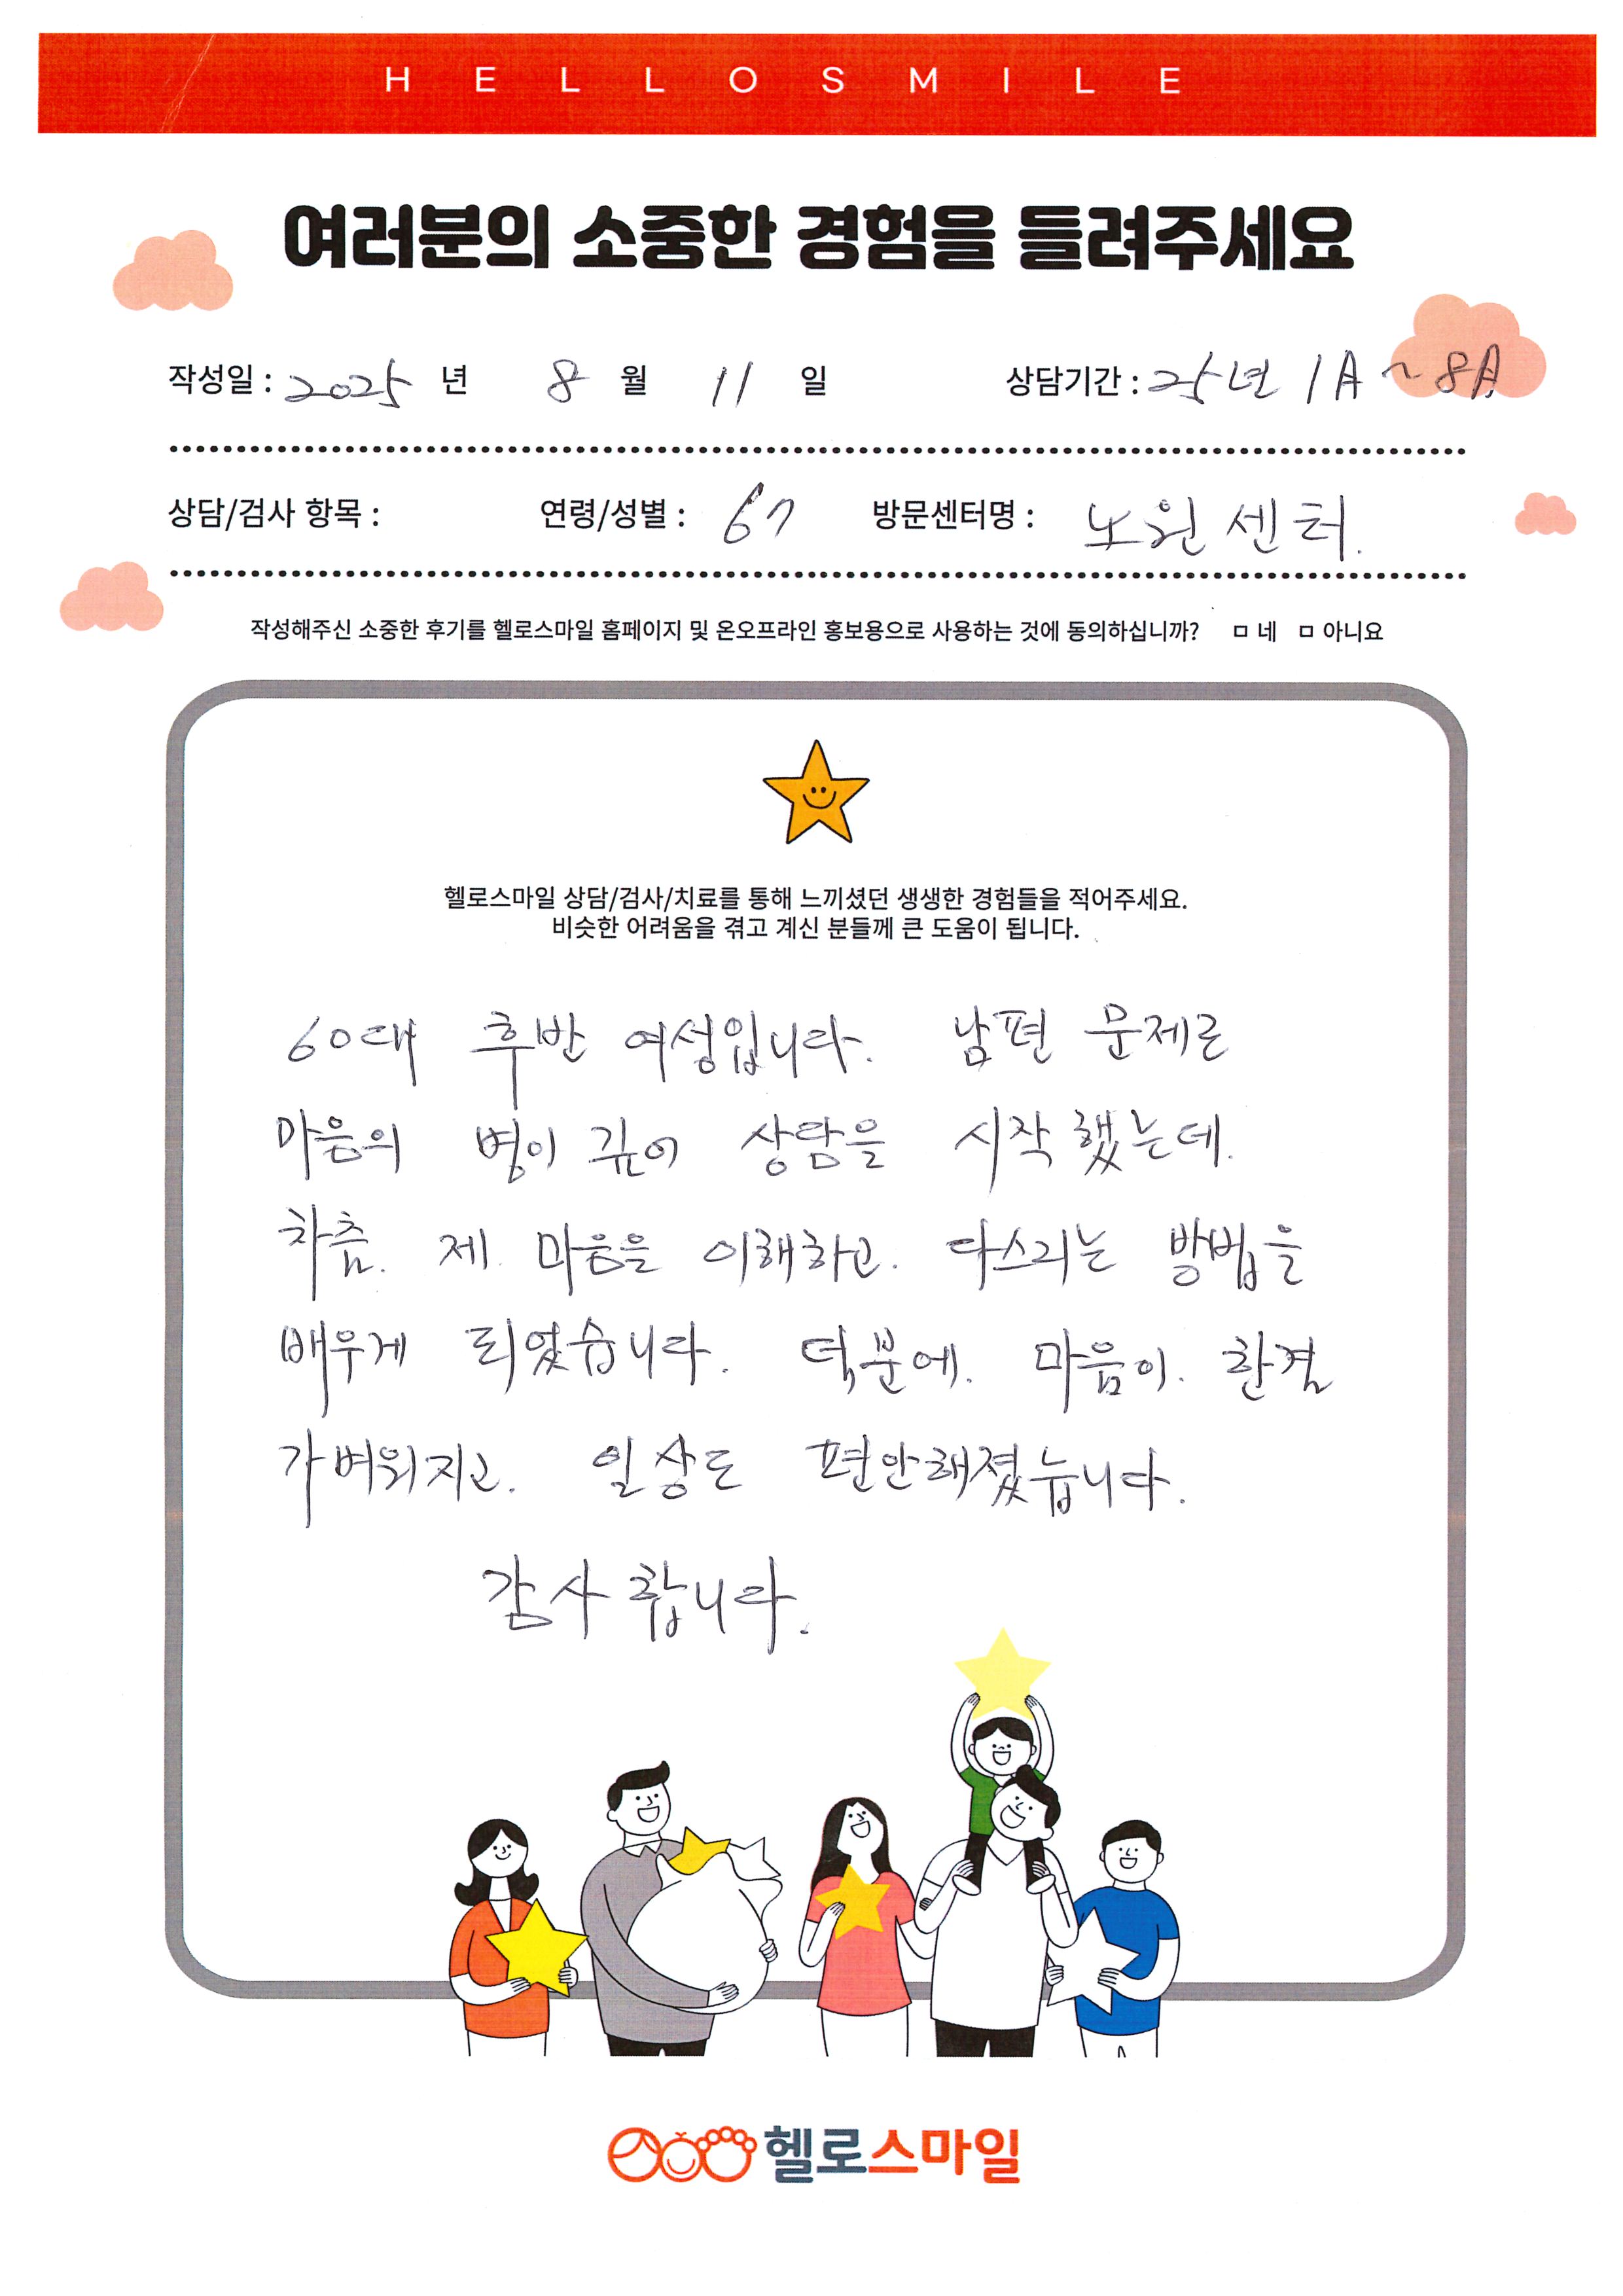 HELLOSMILE
여러분의 소중한 경험을 들려주세요
작성일 : 2025 년 8 월 11 일 상담기간 : 25년 1月 ~ 8月
상담/검사 항목 : 연령/성별 : 67 방문센터명 : 노원센터.
작성해주신 소중한 후기를 헬로스마일 홈페이지 및 온오프라인 홍보용으로 사용하는 것에 동의하십니까? ㅁ 네 ㅁ 아니요
헬로스마일 상담/검사/치료를 통해 느끼셨던 생생한 경험들을 적어주세요.
비슷한 어려움을 겪고 계신 분들께 큰 도움이 됩니다.
60대 후반 여성입니다. 남편 문제로
마음의 병이 깊어 상담을 시작했는데.
차츰. 제. 마음을 이해하고. 다스리는 방법을
배우게 되었습니다. 덕분에. 마음이. 한결
가벼워지고. 일상도 편안해졌습니다.
감사합니다.
헬로스마일